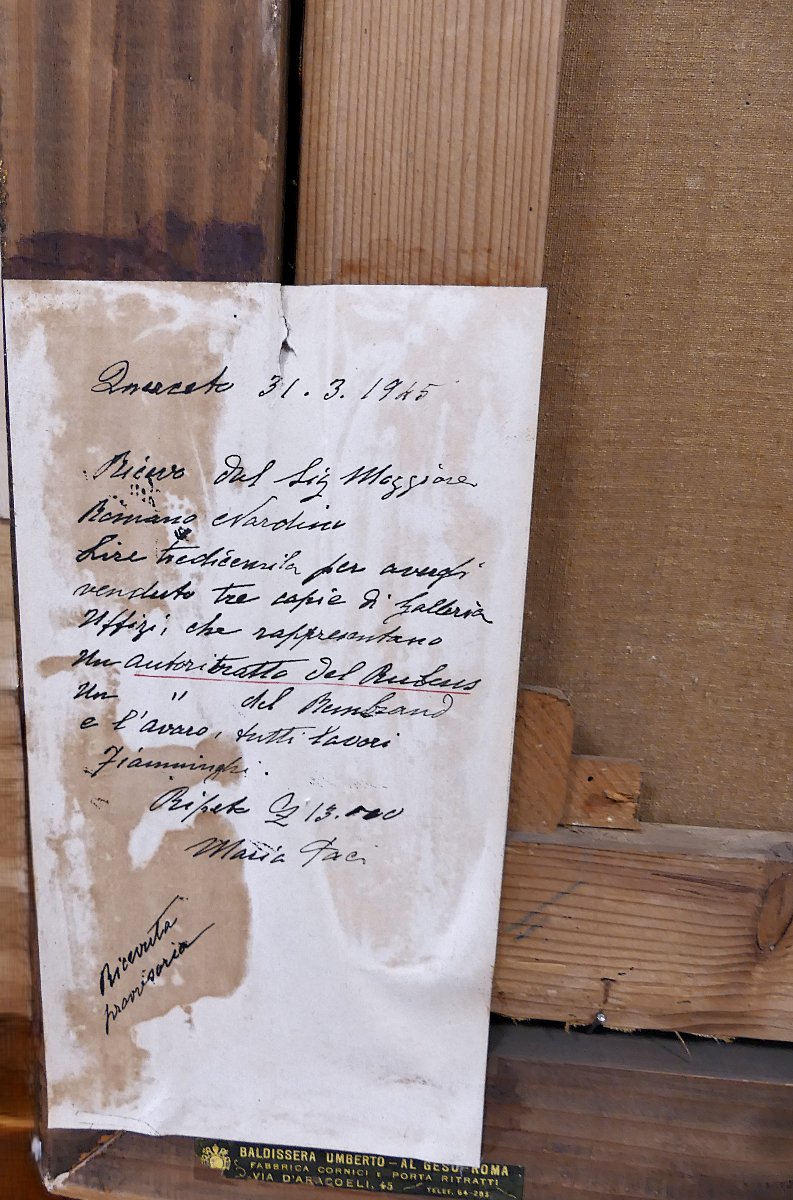 Querceto 31.3.1945
Ricevo dal Sig Maggiore
Romano Nardino
Lire tredicemila per avergli
venduto tre copie di Galleria
Uffizi, che rappresentano
Un autoritratto del Rubens
Un " del Rembrand
e l'avaro, tutti lavori
Fiamminghi.
Ripeto £ 13.000
Maria Paci
Ricevuta
provvisoria
BALDISSERA UMBERTO - AL GESÙ, ROMA
FABBRICA CORNICI E PORTA RITRATTI
VIA D'ARACOELI, 45 TELEF. 64-283